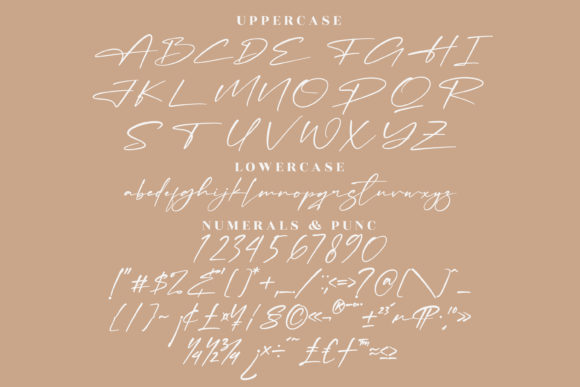 UPPERCASE
A B C D E F G H I
J K L M N O P Q R
S T U V W X Y Z
LOWERCASE
abcdefghijklmnopqrstuvwxyz
NUMERALS & PUNC
1 2 3 4 5 6 7 8 9 0
! " # $ % & ' ( ) * + , - . / : ; < = > ? @ [ \ ] ^ _
{ | } ~ ¡ ¢ £ ¤ ¥ ¦ § © « ¬ ® ¯ ° ± ² ³ ´ µ ¶ · ¸ ¹ º »
¼ ½ ¾ ¿ × ÷ £ € † ™ ≈ ≤ ≥